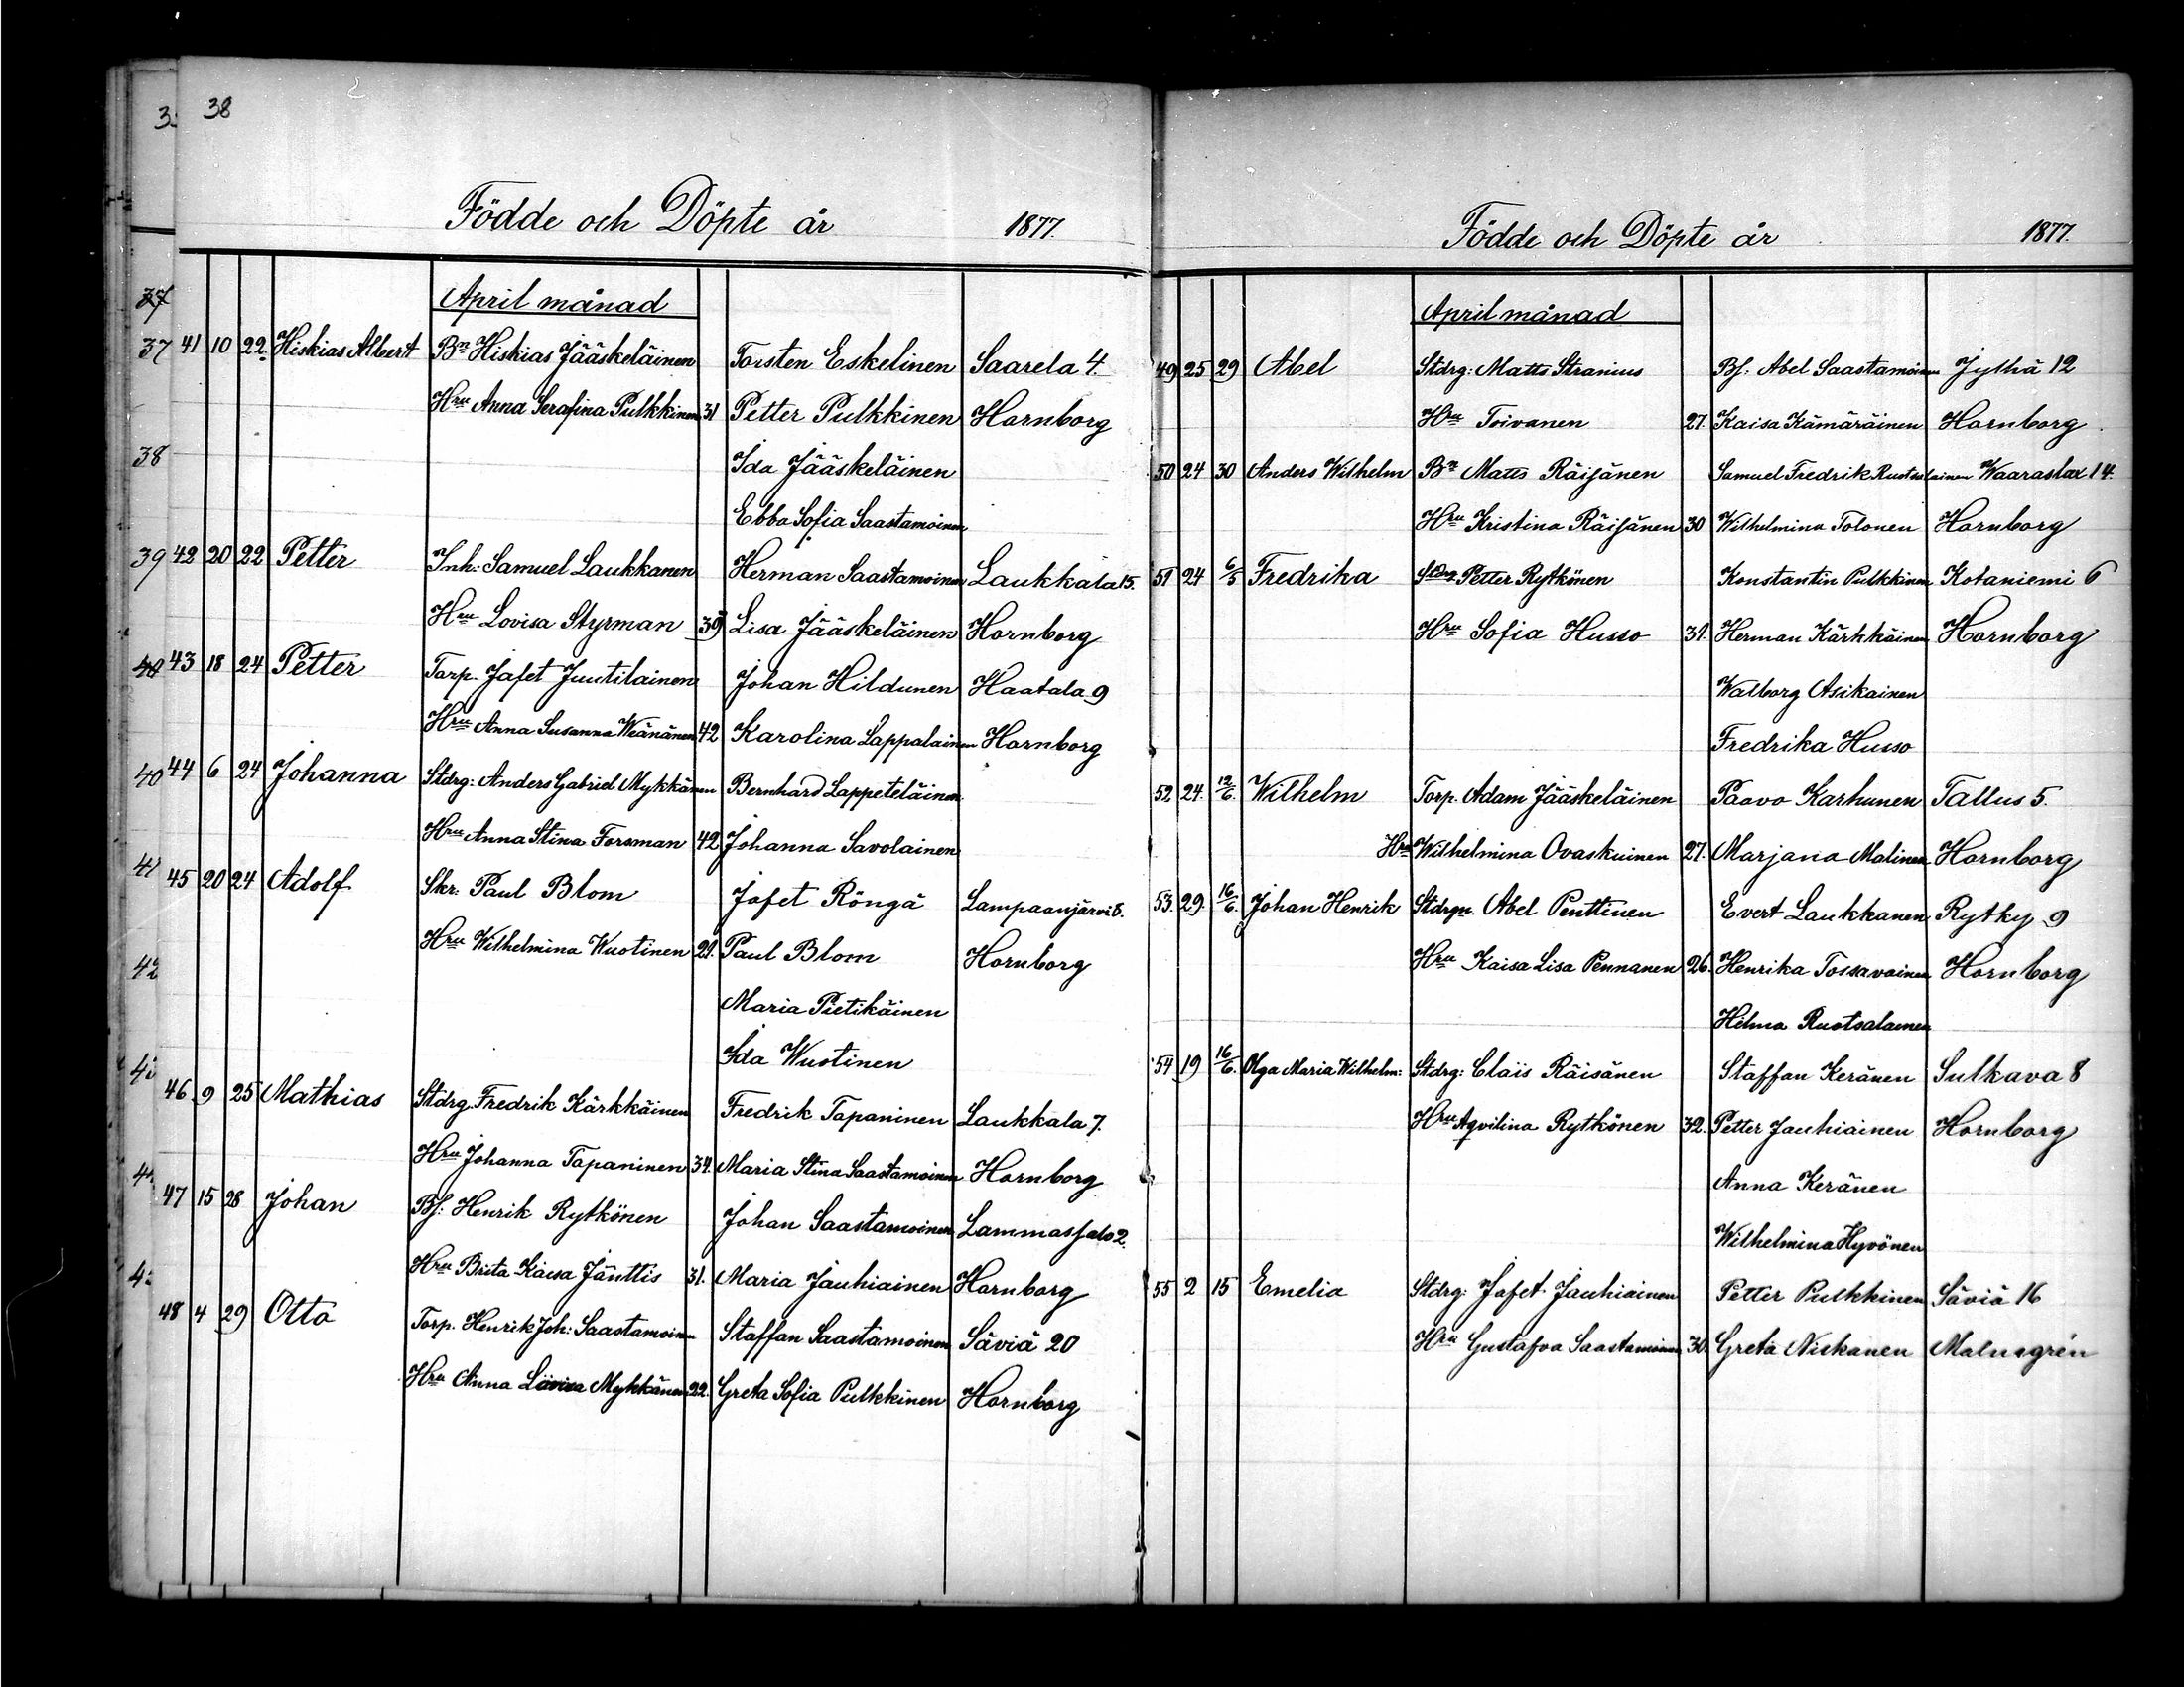 38
Födde och Döpte år 1877
April månad
41 10 22. Hiskias Albert Bn Hiskias Jääskeläinen Torsten Eskelinen Saarela 4.
Hru Anna Serafina Pulkkinen 31 Petter Pulkkinen Hornborg
Ida Jääskeläinen
Ebba Sofia Saastamoinen
42 20 22 Petter Inh: Samuel Laukkanen Herman Saastamoinen Laukkala 15.
Hru Lovisa Styrman 39 Lisa Jääskeläinen Hornborg
43 18 24 Petter Torp. Jafet Juutilainen Johan Hildunen Haatala 9
Hru Anna Susanna Wänänen 42 Karolina Lappalainen Hornborg
44 6 24 Johanna Stdrg: Anders Gabriel Mykkänen Bernhard Lappeteläinen
Hru Anna Stina Forsman 42 Johanna Savolainen
45 20 24 Adolf Skr. Paul Blom Jafet Röngä Lampaanjärvi 8.
Hru Wilhelmina Wuotinen 29. Paul Blom Hornborg
Maria Pietikäinen
Ida Wuotinen
46 9 25 Mathias Stdrg. Fredrik Kärkkäinen Fredrik Tapaninen Laukkala 7.
Hru Johanna Tapaninen 34. Maria Stina Saastamoinen Hornborg
47 15 28 Johan Bf. Henrik Rytkönen Johan Saastamoinen Lammassalo 2.
Hru Brita Kaisa Jänttis 31. Maria Jauhiainen Hornborg
48 4 29 Otto Torp. Henrik Joh: Saastamoinen Staffan Saastamoinen Säviä 20
Hru Anna Lovisa Mykkänen 22. Greta Sofia Pulkkinen Hornborg
Födde och Döpte år 1877.
April månad
49 25 29 Abel Stdrg: Matts Stranius Bf. Abel Saastamoinen Jylhä 12
Hru Toivanen 27. Kaisa Kämäräinen Hornborg
50 24 30 Anders Wilhelm Bn Matts Räisänen Samuel Fredrik Ruotsalainen Waaraslax 14.
Hru Kristina Räisänen 30 Wilhelmina Tolonen Hornborg
51 24 6/5 Fredrika Stdrg Petter Rytkönen Konstantin Pulkkinen Kotaniemi 6
Hru Sofia Husso 31. Herman Kärkkäinen Hornborg
Walborg Asikainen
Fredrika Husso
52 24. 12/6. Wilhelm Torp. Adam Jääskeläinen Paavo Karhunen Tallus 5.
Hru Wilhelmina Ovaskainen 27. Marjana Malinen Hornborg
53. 29. 16/6. Johan Henrik Stdrgn. Abel Penttinen Evert Laukkanen Rytky 9
Hru Kaisa Lisa Pennanen 26. Henrika Tossavainen Hornborg
Hilma Ruotsalainen
54 19 16/6. Olga Maria Wilhelm: Stdrg: Claës Räisänen Staffan Keränen Sulkava 8
Hru Aqvilina Rytkönen 32. Petter Jauhiainen Hornborg
Anna Keränen
Wilhelmina Hyvönen
55 2 15 Emelia Stdrg: Jafet Jauhiainen Petter Pulkkinen Säviä 16
Hru Gustafva Saastamoinen 30. Greta Niskanen Malmgrén